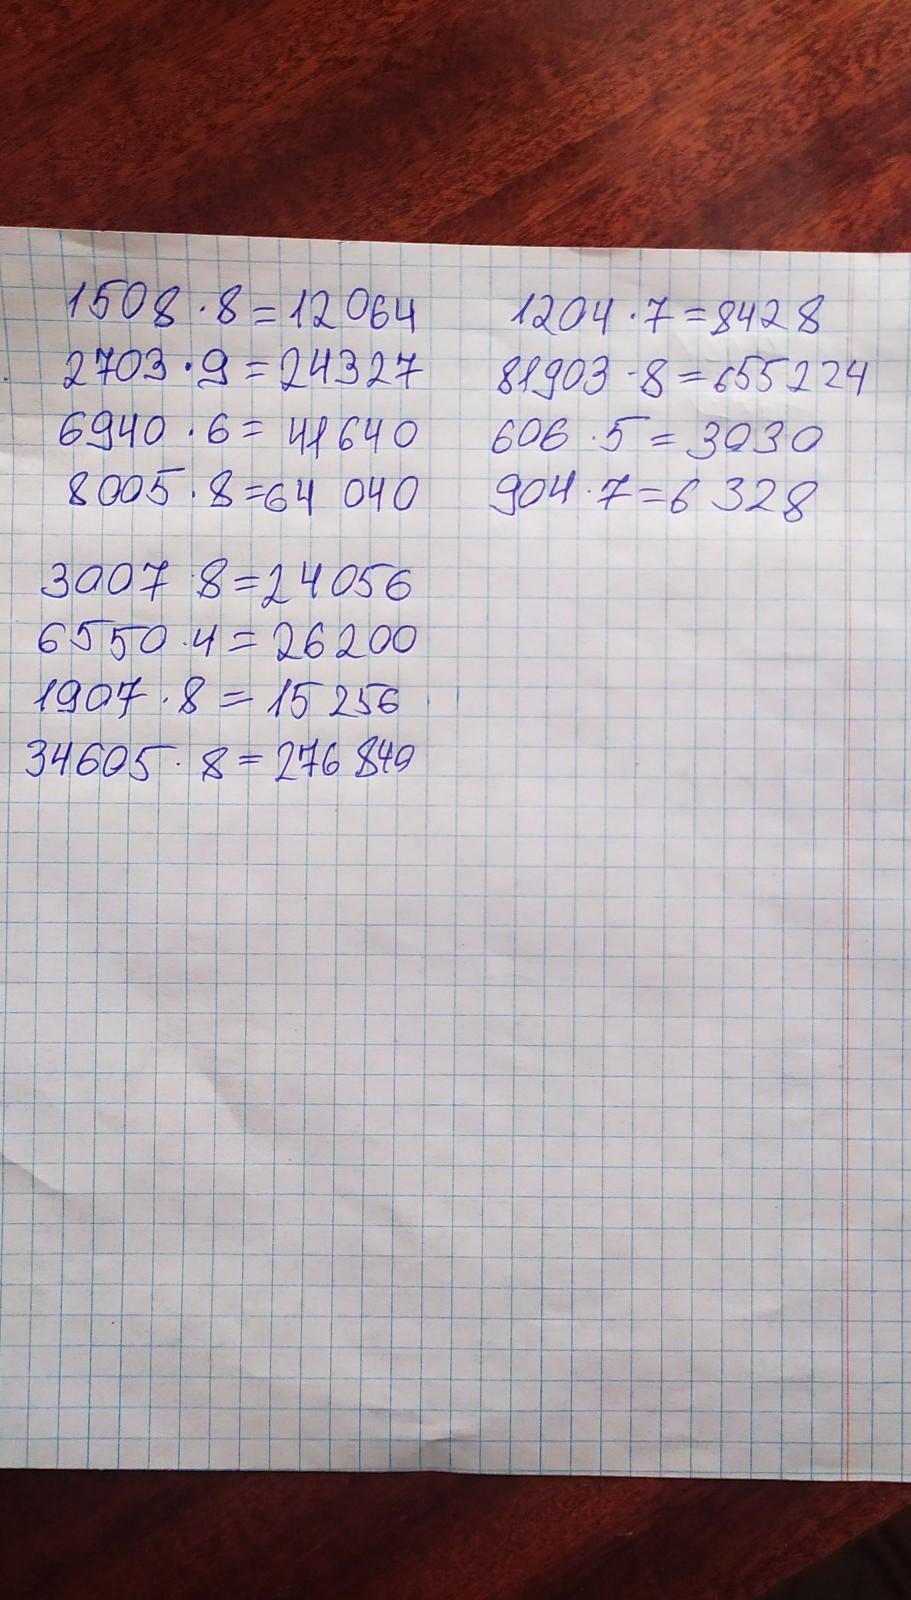 1508 · 8 = 12064
2703 · 9 = 24327
6940 · 6 = 41640
8005 · 8 = 64 040
3007 · 8 = 24056
6550 · 4 = 26200
1907 · 8 = 15 256
34605 · 8 = 276 840
1204 · 7 = 8428
81903 · 8 = 655224
606 · 5 = 3030
904 · 7 = 6 328